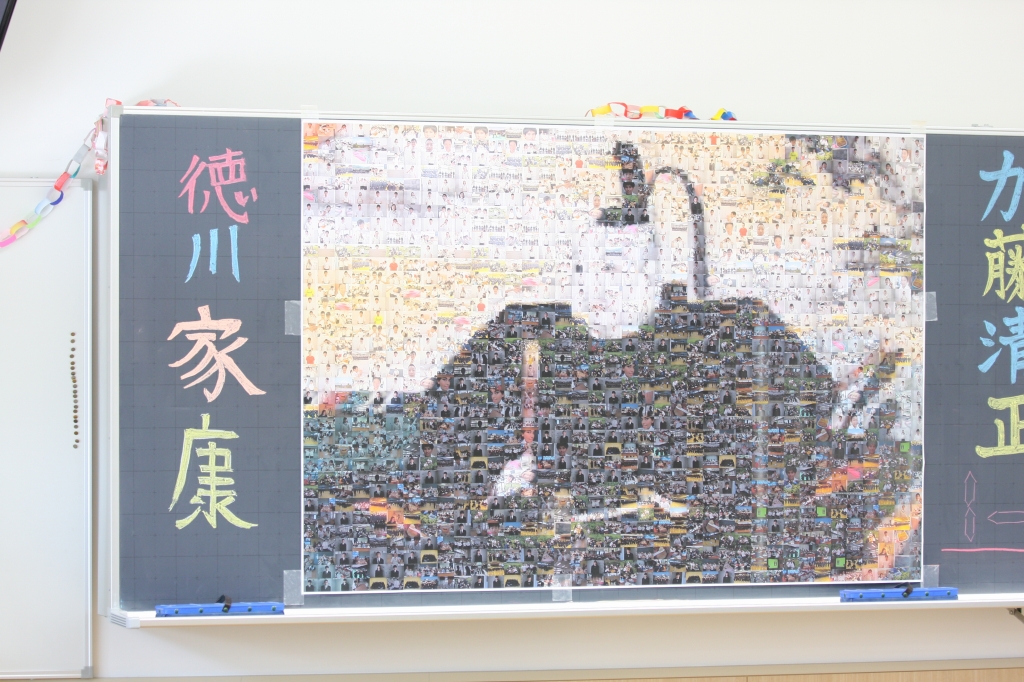 徳川家康
加藤清正